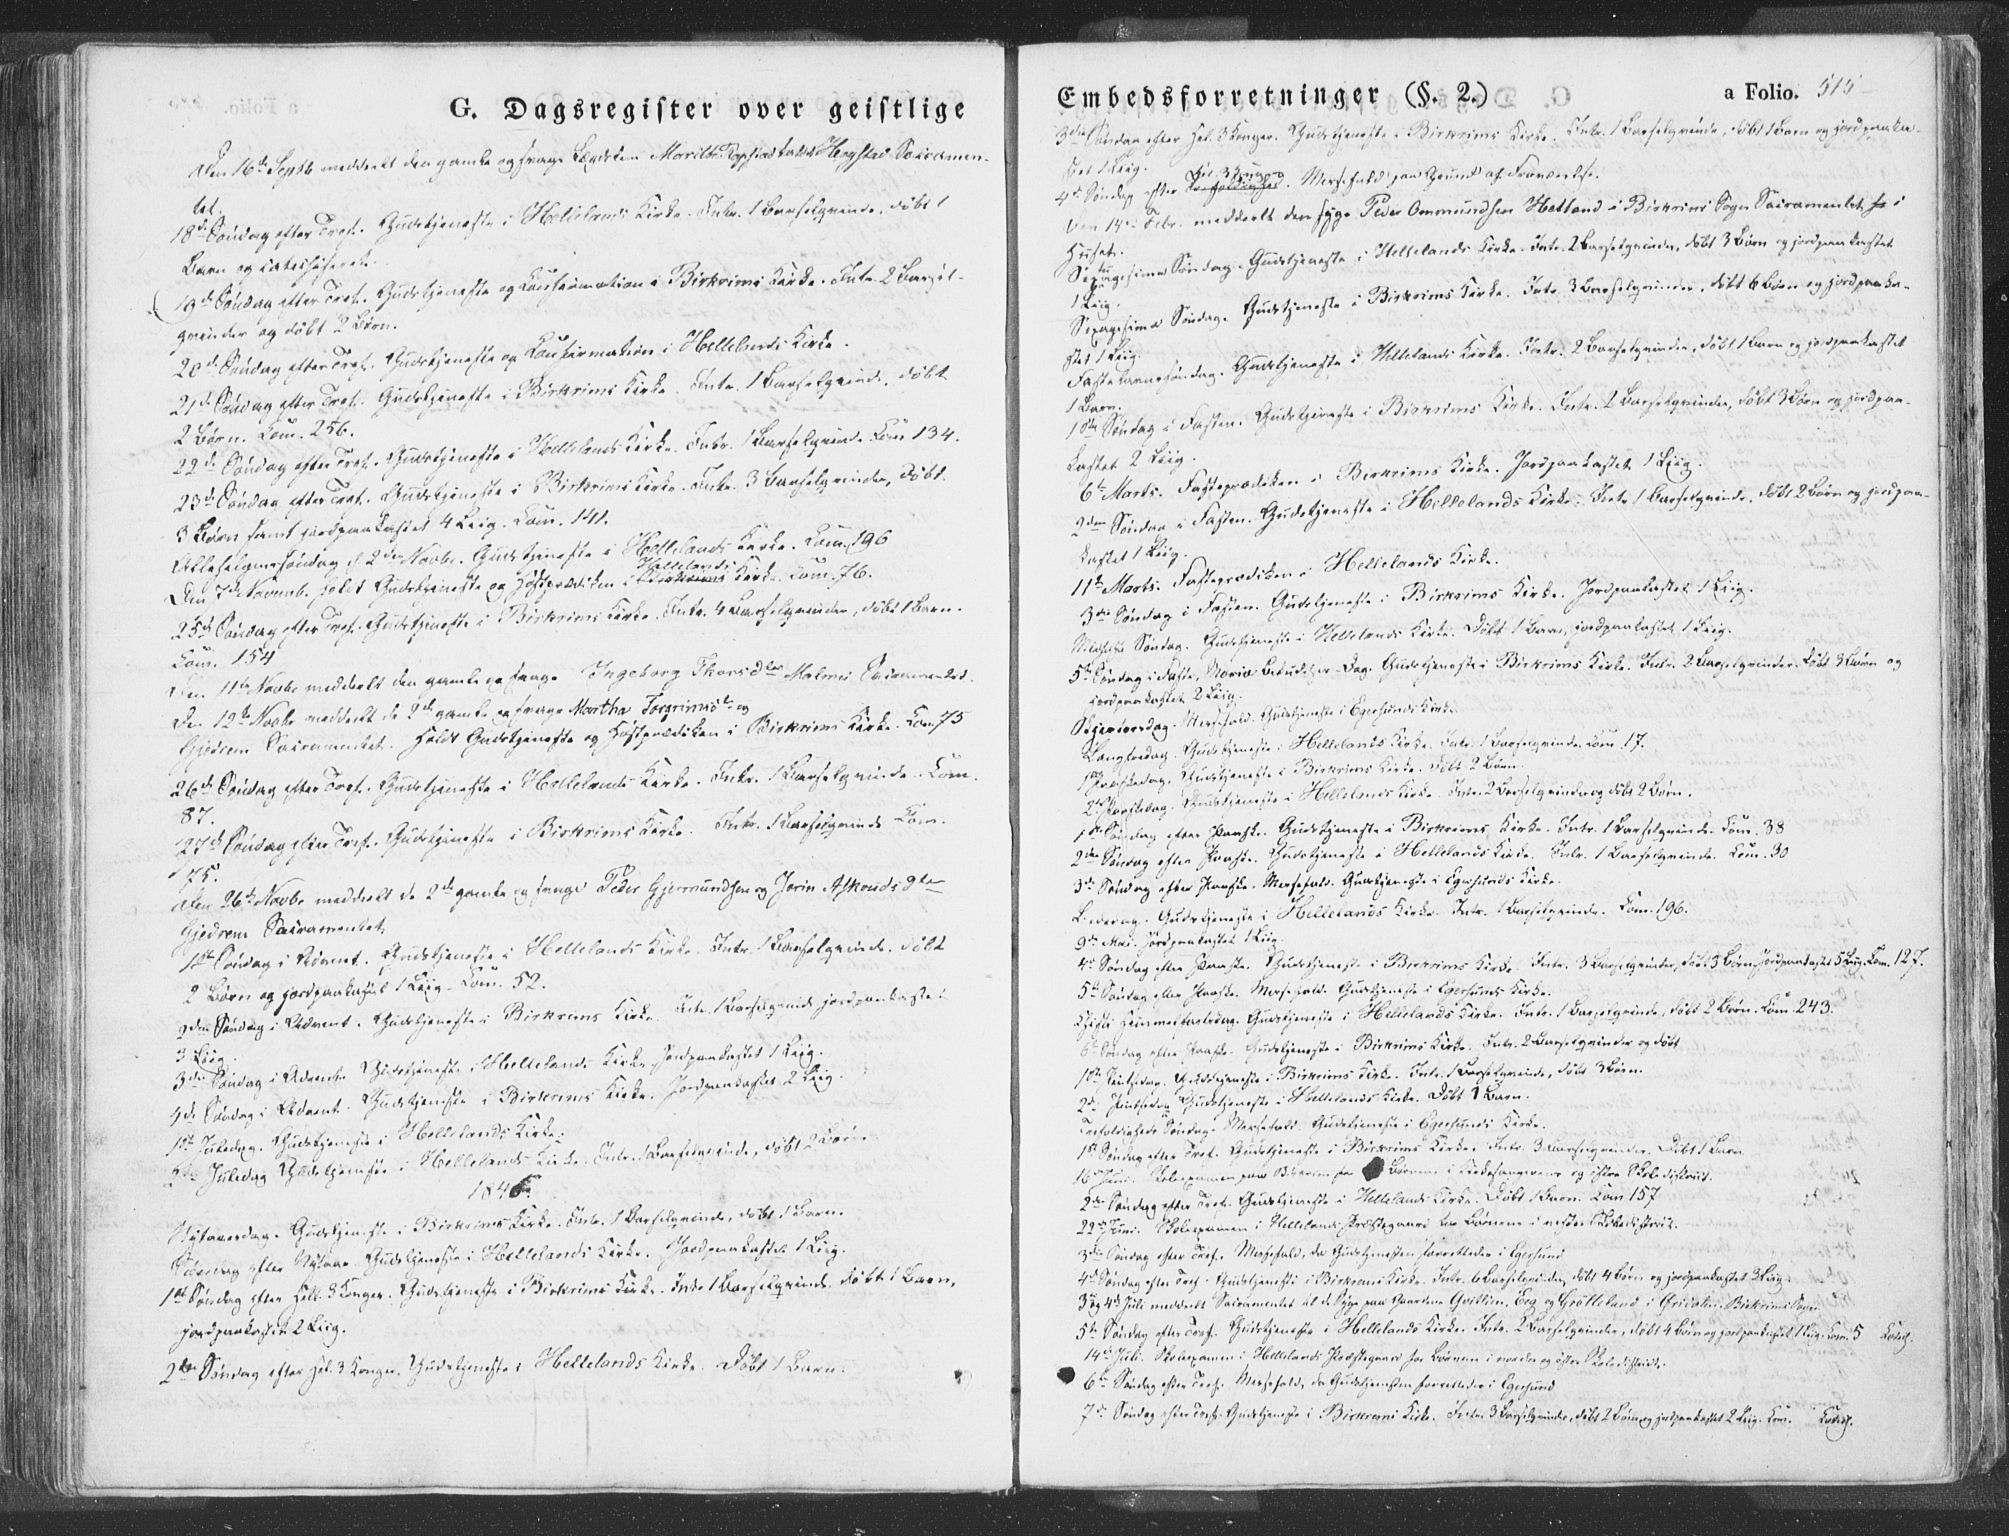 G. Dagsregister over geistlige
Den 16de Septb meddeelt den gamle og svage Hegstad Sacramen-
tet.
18de Søndag efter Tref. Gudstjeneste i Hellelands Kirke. Intr. 1 Barselqvinde, døbt 1
Barn og catechiseret.
19de Søndag efter Tref. Gudstjeneste og Confirmation i Birkrims Kirke. Intr. 2 Barsel-
qvinder og døbt 2 Børn.
20de Søndag efter Tref. Gudstjeneste og Confirmation i Hellelands Kirke.
21de Søndag efter Tref. Gudstjeneste i Birkrims Kirke. Intr. 1 Barselqvinde, døbt
2 Børn. Com. 256.
22de Søndag efter Tref. Gudstjeneste i Hellelands Kirke. Intr. 1 Barselqvinde Com 134.
23de Søndag efter Tref. Gudstjeneste i Birkrims Kirke. Intr. 3 Barselqvinder, døbt
3 Børn samt jordpaakastet 4 Liig. Com. 141.
Allehelgensøndag d 2den Novbr. Gudstjeneste i Hellelands Kirke. Com. 196
Den 7de Novemb. holdt Gudstjeneste og Høstprædiken i Hellelands Kirke. Com. 76.
25de Søndag efter Tref. Gudstjeneste i Birkrims Kirke. Intr. 4 Barselqvinder, døbt 1 Barn.
Com. 154
Den 11te Novbr meddeelt den gamle og svage Ingeborg Thorsdtr Malmei Sacramentet.
Den 12te Novbr meddeelt de 2de gamle og svage Martha Torgrimsdtr og
Gjedrem Sacramentet. Holdt Gudstjeneste og Høstprædiken i Birkrims Kirke. Com 75
26de Søndag efter Tref. Gudstjeneste i Hellelands Kirke. Intr. 1 Barselqvinde. Com.
87.
27de Søndag efter Tref. Gudstjeneste i Birkrims Kirke. Intr. 1 Barselqvinde Com.
75.
Den 26de Novbr meddeelt de 2de gamle og svage Peder Gjermundsen og Jorin Asknudsdtr
Gjedrem Sacramentet.
1ste Søndag i Advent. Gudstjeneste i Hellelands Kirke. Intr. 1 Barselqvinde, døbt
2 Børn og jordpaakastet 1 Liig. Com. 52.
2den Søndag i Advent. Gudstjeneste i Birkrims Kirke. Intr. 1 Barselqvinde jordpaakastet
3 Liig.
3die Søndag i Advent. Gudstjeneste i Hellelands Kirke. Jordpaakastet 1 Liig.
4de Søndag i Advent. Gudstjeneste i Birkrims Kirke. Jordpaakastet 2 Liig.
1ste Juledag. Gudstjeneste i Hellelands Kirke.
Juledag Gudstjeneste i Hellelands Kirke. Intr. 1 Barselqvinde, døbt 2 Børn.
1846.
Nytaarsdag. Gudstjeneste i Birkrims Kirke. Intr. 1 Barselqvinde, døbt 1 Barn.
Søndag efter Nytaar. Gudstjeneste i Hellelands Kirke. Jordpaakastet 1 Liig.
1ste Søndag efter Hell. 3 Konger. Gudstjeneste i Birkrims Kirke. Intr 1 Barselqvinde, døbt 1 Barn,
jordpaakastet 2 Liig.
2den Søndag efter Hel. 3 Konger. Gudstjeneste i Hellelands Kirke. Døbt 1 Barn.
Embedsforretninger (§. 2.) a Folio. 515
3die Søndag efter Hel. 3 Konger. Gudstjeneste i Birkrims Kirke. Intr. 1 Barselqvinde, døbt 1 Barn og jordpaaka-
stet 1 Liig.
4de Søndag efter Hel. 3 Kong. Messefald paa Grund af Fraværelse.
Den 14de Febr. meddeelt den syge Peder Ommundsen Hetland i Birkrims Sogn Sacramentet i
Huset.
Septuagesima Søndag. Gudstjeneste i Hellelands Kirke. Intr. 2 Barselqvinder, døbt 3 Børn og jordpaakastet
1 Liig.
Sexagesima Søndag. Gudstjeneste i Birkrims Kirke. Intr. 3 Barselqvinder, døbt 6 Børn og jordpaaka-
stet 1 Liig.
Fastelavnssøndag. Gudstjeneste i Hellelands Kirke. Intr. 2 Barselqvinder, døbt 1 Barn og jordpaakastet
1 Barn.
1ste Søndag i Fasten. Gudstjeneste i Birkrims Kirke. Intr. 2 Barselqvinder, døbt 3 Børn og jordpaa-
kastet 2 Liig.
6te Marts. Fasteprædiken i Birkrims Kirke. Jordpaakastet 1 Liig.
2den Søndag i Fasten. Gudstjeneste i Hellelands Kirke. Intr 1 Barselqvinde, døbt 2 Børn og jordpaa-
kastet 1 Liig.
11te Marts. Fasteprædiken i Hellelands Kirke.
3die Søndag i Fasten. Gudstjeneste i Birkrims Kirke. Jordpaakastet 1 Liig.
Midfaste Søndag. Gudstjeneste i Hellelands Kirke. Døbt 1 Barn, jordpaakastet 1 Liig.
5te Søndag i Faste, Mariæ Bebudelses-Dag. Gudstjeneste i Birkrims Kirke. Intr. 2 Barselqvinder, døbt 3 Børn og
jordpaakastet 2 Liig.
Skjertorsdag. Messefald. Gudstjeneste i Egersunds Kirke.
Langfredag. Gudstjeneste i Hellelands Kirke. Intr. 1 Barselqvinde. Com. 17.
1ste Paaskedag. Gudstjeneste i Birkrims Kirke. Døbt 2 Børn.
2den Paaskedag. Gudstjeneste i Hellelands Kirke. Intr. 2 Barselqvinder og døbt 2 Børn.
1ste Søndag efter Paaske. Gudstjeneste i Birkrims Kirke. Intr. 1 Barselqvinde. Com. 38
2den Søndag efter Paaske. Gudstjeneste i Hellelands Kirke. Intr. 1 Barselqvinde. Com. 30
3die Søndag efter Paaske. Messefald. Gudstjeneste i Egersunds Kirke.
Bededag. Gudstjeneste i Hellelands Kirke. Intr. 1 Barselqvinde. Com. 196.
9de Mai. Jordpaakastet 1 Liig
4de Søndag efter Paaske. Gudstjeneste i Birkrims Kirke. Intr. 3 Barselqvinder, døbt 3 Børn, Jordpaakastet 5 Liig. Com. 127.
5te Søndag efter Paaske. Messefald. Gudstjeneste i Egersunds Kirke.
Christi Himmelfartsdag. Gudstjeneste i Hellelands Kirke. Intr. 1 Barselqvinde, døbt 2 Børn. Com. 243.
6te Søndag efter Paaske. Gudstjeneste i Birkrims Kirke. Intr. 2 Barselqvinder og døbt
1ste Pintsedag. Gudstjeneste i Birkrims Kirke. Intr. 1 Barselqvinde, døbt 3 Børn.
2den Pintsedag Gudstjeneste i Hellelands Kirke. Døbt 1 Barn.
Trefoldigheds Søndag. Messefald. Gudstjeneste i Egersunds Kirke.
1ste Søndag efter Tref. Gudstjeneste i Birkrims Kirke. Intr. 3 Barselqvinder. Døbt 1 Barn
16de Juni. Skoleexamen paa Birkrim for Børnene i Kirkesangerens og østre Skoledistrict.
2den Søndag efter Tref. Gudstjeneste i Hellelands Kirke. Døbt 1 Barn. Com 157
22de Juni. Skoleexamen i Hellelands Præstegaard for Børnene i vestre Skoledistrict.
3die Søndag efter Tref. Messefald, da Gudstjenesten forrettedes i Egersund
4de Søndag efter Tref. Gudstjeneste i Birkrims Kirke. Intr. 6 Barselqvinder, døbt 4 Børn og jordpaakastet 3 Liig.
3die og 4de Juli meddeelt Sacramentet til de Syge paa Gaardene Gvitlim, Eeg og Grøtteland i Birkrims Sogn
5te Søndag efter Tref. Gudstjeneste i Hellelands Kirke. Intr. 2 Barselqvinder, døbt 4 Børn og jordpaakastet 1 Liig. Com. 5
14de Juli. Skoleexamen i Hellelands Præstegaard for Børnene i nordre og østre Skoledistrict.
6te Søndag efter Tref. Messefald, da Gudstjenesten forrettedes i Egersund
7de Søndag efter Tref. Gudstjeneste i Birkrims Kirke. Intr. 3 Barselqvinder, døbt 2 Børn og jordpaakastet 2 Liig. Com.